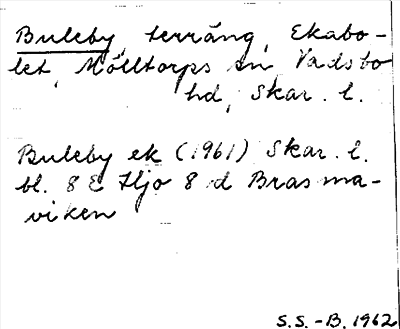 Buleby, terräng, Ekabo-
let, Mölltorps sn, Vadsbo
hd, Skar. l.
Buleby ek (1961) Skar. l.
bl. 8 E Hjo 8 d Brasma-
viken
S.S.-B. 1962